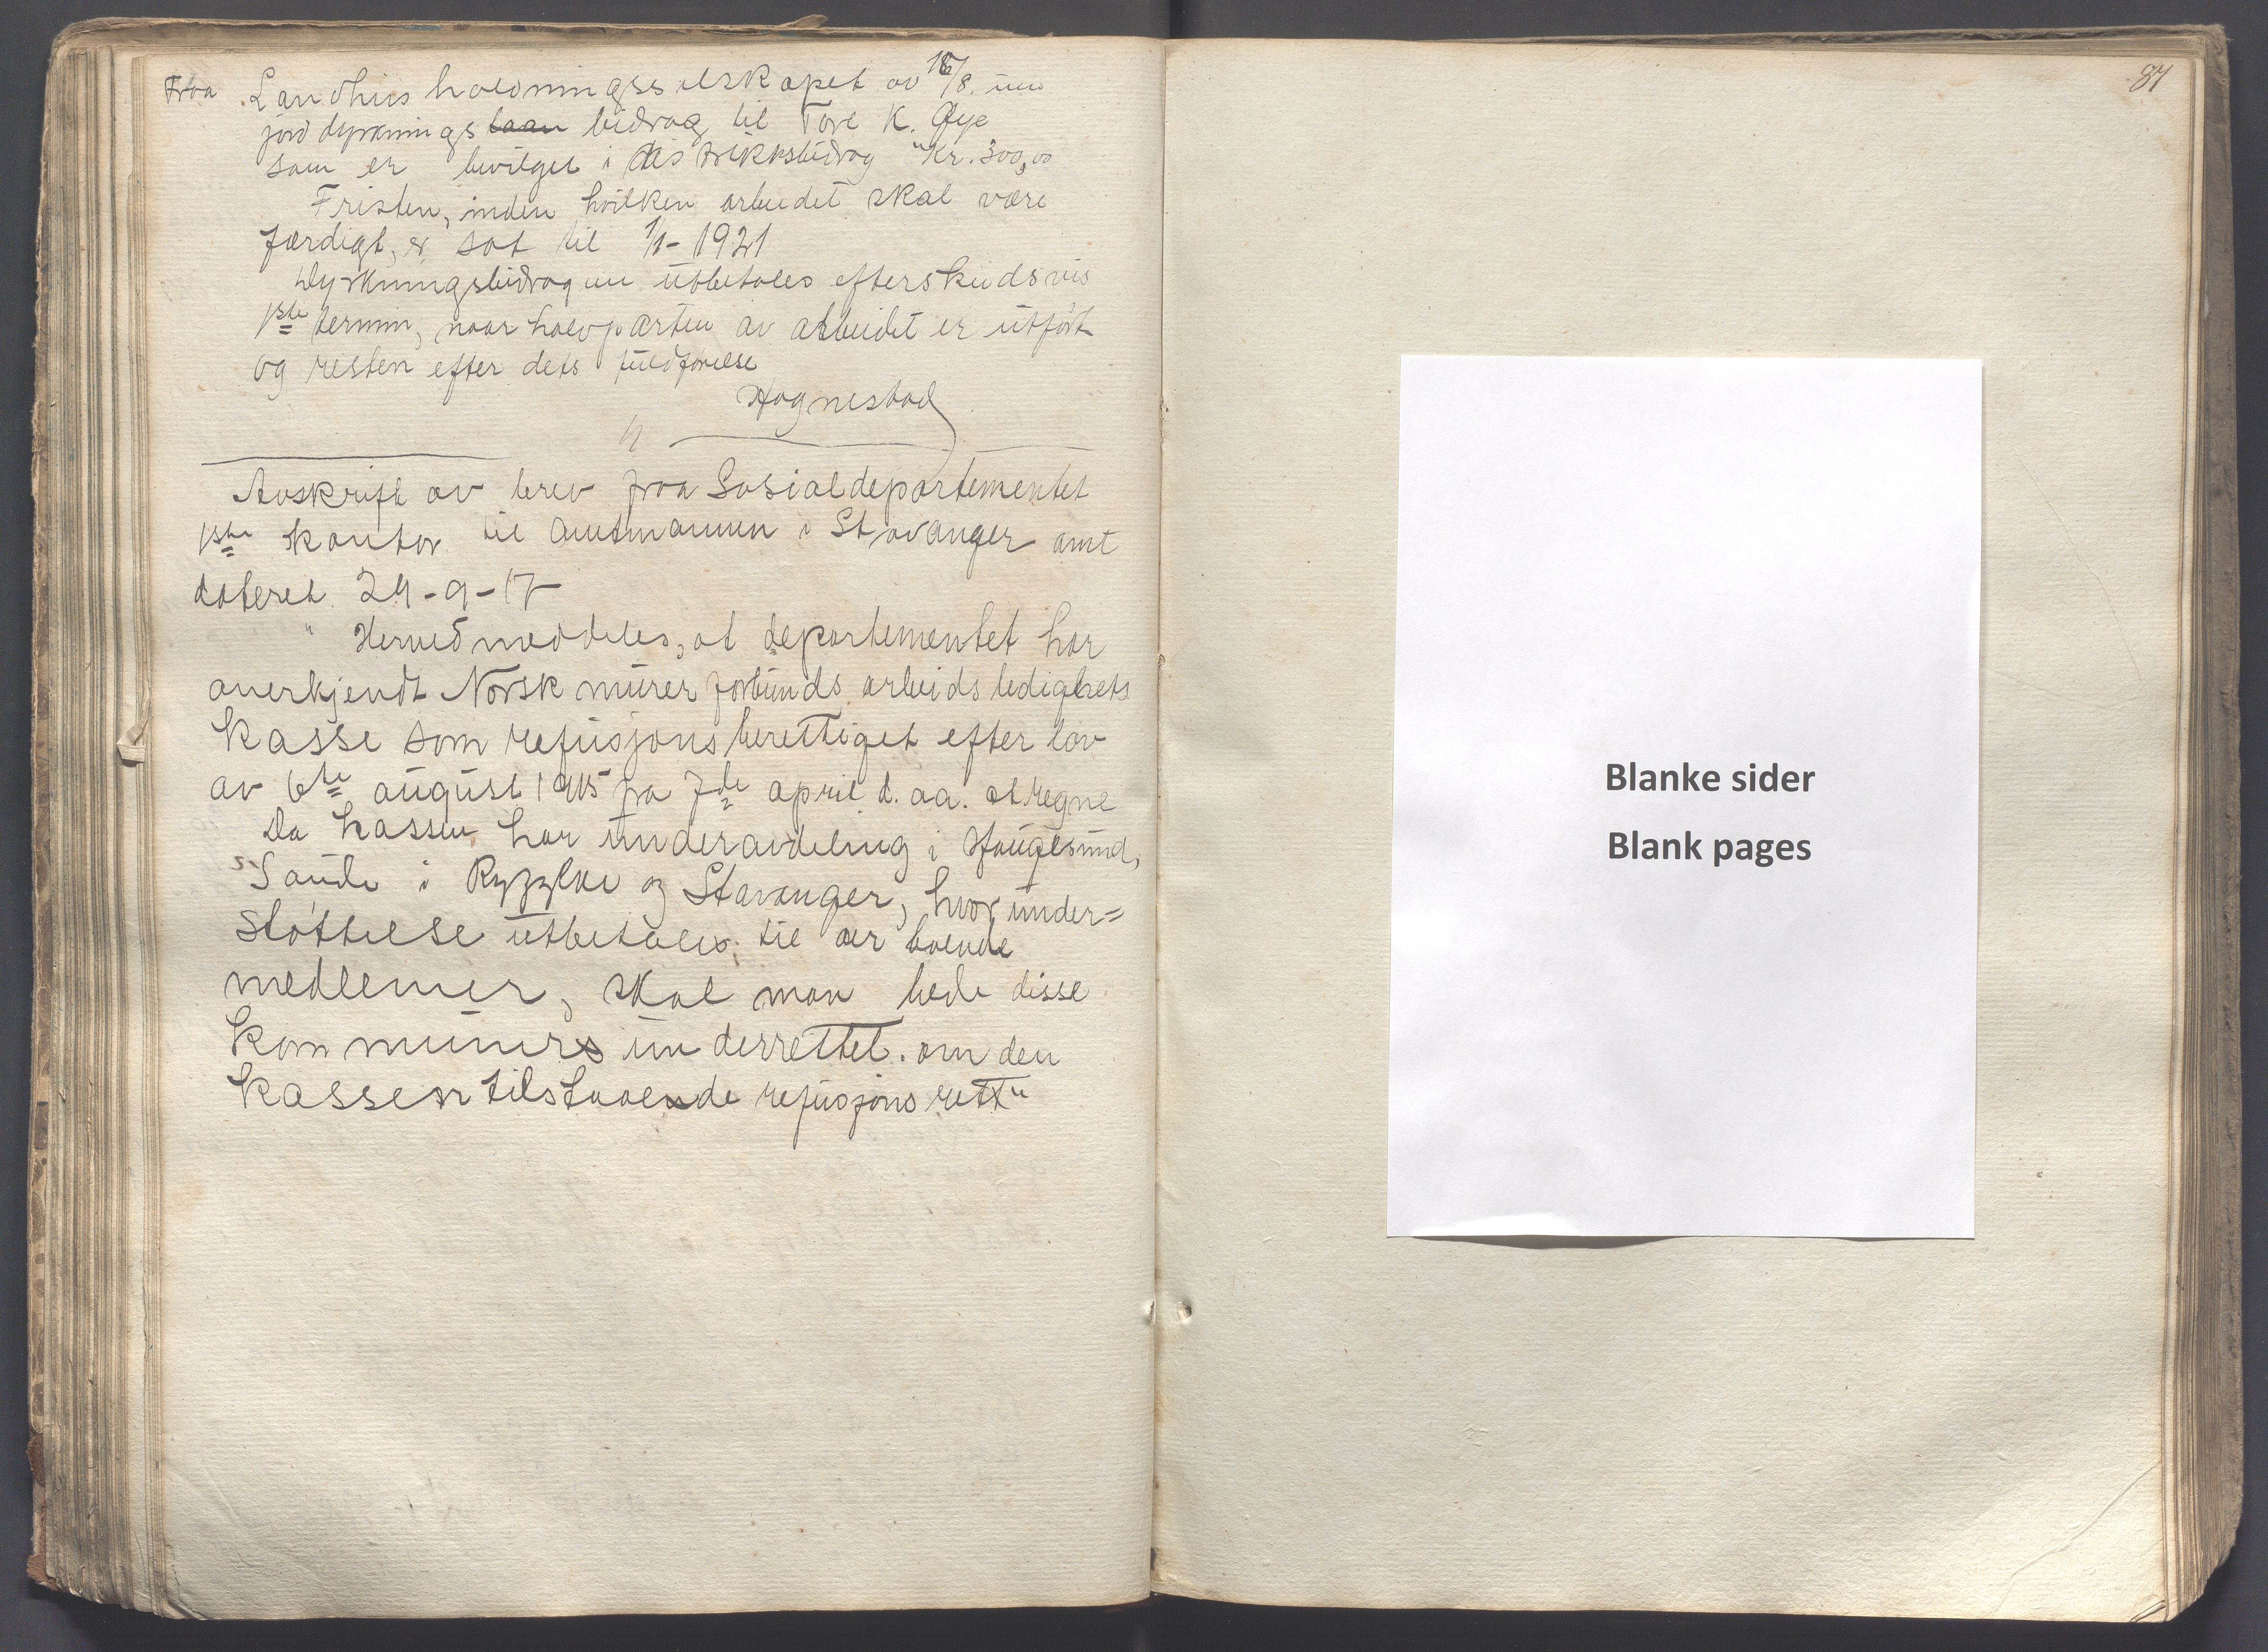 Fraa Landhusholdningsselskapet av 16/8. um
jorddyrknings laan bidrag til Tore K. Øye
som er bevilget i distriktsbidrag "Kr. 300,00
Fristen, inden hvilken arbeidet skal være
færdigt, er sat til 1/1- 1921
Dyrkningsbidragen utbetales efterskudsvis
1ste termin, naar halvparten av arbeidet er utført
og resten efter dets fuldførelse
Hognestad
Avskrift av brev fraa Sosialdepartementet
1ste kontor til amtmannen i Stavanger amt
dateret 29-9-17
" Herved meddeles, at departementet har
anerkjendt Norsk murerforbunds arbeidsledighets
kasse som refusjonsberettiget efter lov
av 6te august 1915 fra 7de april d. aa. at regne
Da kassen har underavdeling i Haugesund,
Sauda i Ryfylke og Stavanger, hvor under=
støttelse utbetales til der boende
medlemer, skal man bede disse
kommuners underrettet. om den
kassen tilstaaende refusjonsrett"
87
Blanke sider
Blank pages